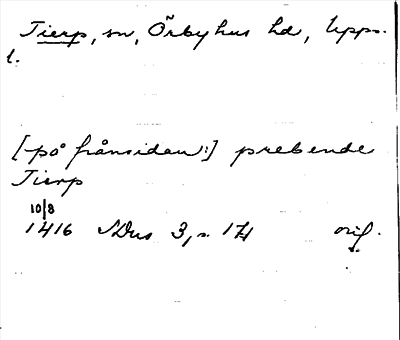 Tierp, sn, Örbyhus hd, Upps.
l.
[på frånsidan:] prebende
Tierp
10/8
1416 SDns 3, s. 174 orig.